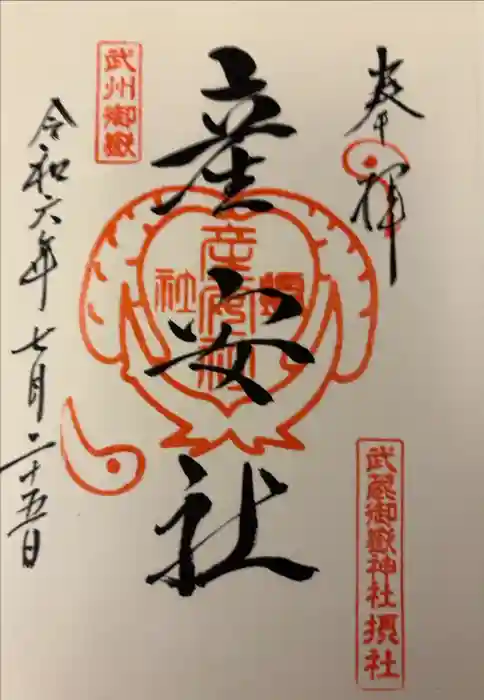 奉拝
武蔵御嶽神社摂社
産安社
武州御嶽
令和六年七月二十五日